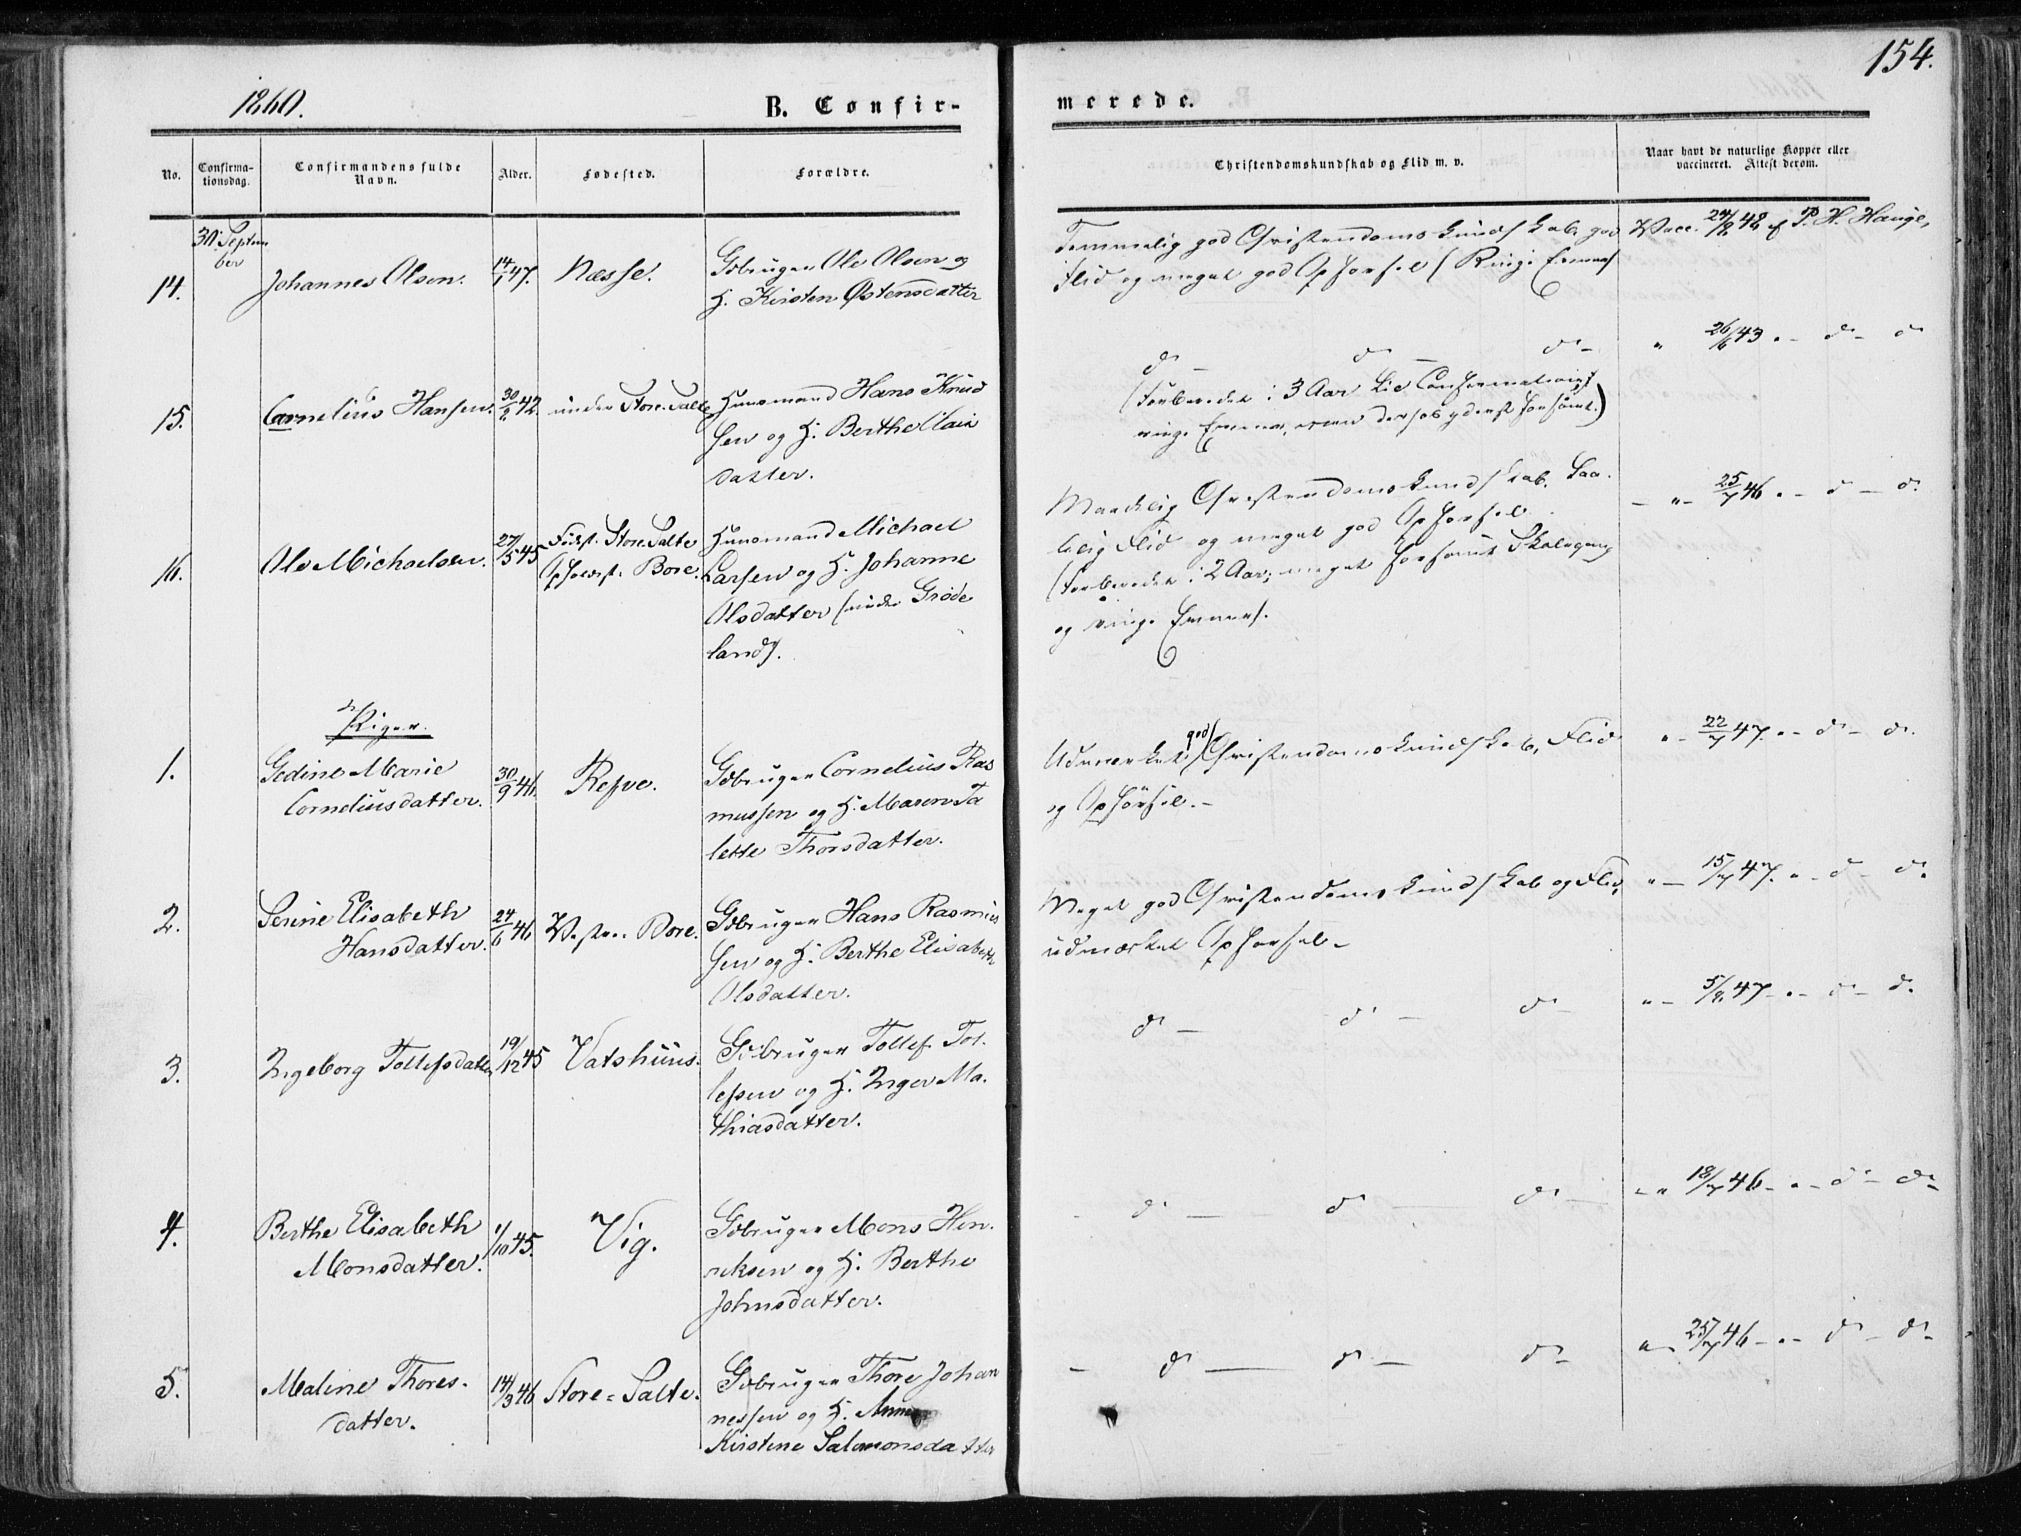 154.
1860.
B. Confir-
merede.
No.
Confirma-
tionsdag.
Confirmandens fulde
Navn.
Alder.
Fødested.
Forældre.
Christendomskundskab og Flid m. v.
Naar havt de naturlige Kopper eller
vaccineret. Attest derom.
30. Septem
ber
14.
Johannes Olsen.
14/1 47.
Næsse.
Gdbruger Ole Olsen og
H. Kirsten Østensdatter
Temmelig god Christendomskundskab, god
Flid og meget god Opførsel (Ringe Evner)
Vacc. 24/8 48 af P. H. Hauge,
15.
Cornelius Hansen.
30/ 42.
under Store-Salte
Huusmand Hans Knud
sen og H. Berthe
datter.
d° - d° - d° -
(Forberedet i 3 Aar til Confirmation;
ringe Evner, men derhos yderst forsømt.)
" 26/6 43 " - d° - d°
16.
Ole Michaelsen.
27/5 45
Fødest. Store-Salte
Opholdsst. Bore.
Huusmand Michael
Larsen og H. Johanne
Olsdatter (under Grøde
land).
Maadelig Christendomskundskab. Taa-
lelig Flid og meget god Opførsel
(Forberedet i 2 Aar; meget forsømt Skolegang
og ringe Evner).
- " - 25/7 46 " - d° - d°
Piger.
1.
Gedine Marie
Corneliusdatter.
30/9 46.
Refve.
Gdbruger Cornelius Ras
mussen og H. Maren Ta
lette Thorsdatter.
Udmærket god Christendomskundskab, Flid
og Opførsel. -
" - 22/7 47. " - d° - d°
2.
Serine Elisabeth
Hansdatter.
24/6 46
Vestre Bore.
Gdbruger Hans Rasmus
sen og H. Berthe Elisabeth
Olsdatter.
Meget god Christendomskundskab og Flid,
udmærket Opførsel -
" - 15/7 47. " - d° - d°
3.
Ingeborg Tollefsdatter
19/12 45
Vatshuus.
Gdbruger Tollef Tol-
lefsen og H. Inger Ma-
thiasdatter.
d° - d° - d° -
" - 5/8 47 - " - d° - d°
4.
Berthe Elisabeth
Monsdatter.
1/10 45.
Vig.
Gdbruger Mons Hen-
riksen og H. Berthe
Johnsdatter.
- d° - d° - d° -
- " 18/7 46 - " - d° - d° -
5.
Maline Thores-
datter.
14/3 46
Store-Salte.
Gdbruger Thore Johan
nessen og H. Anne
Kirstine Salomonsdatter
- d° - d° - d° -
" - 25/7 46 - " - d° - d° -